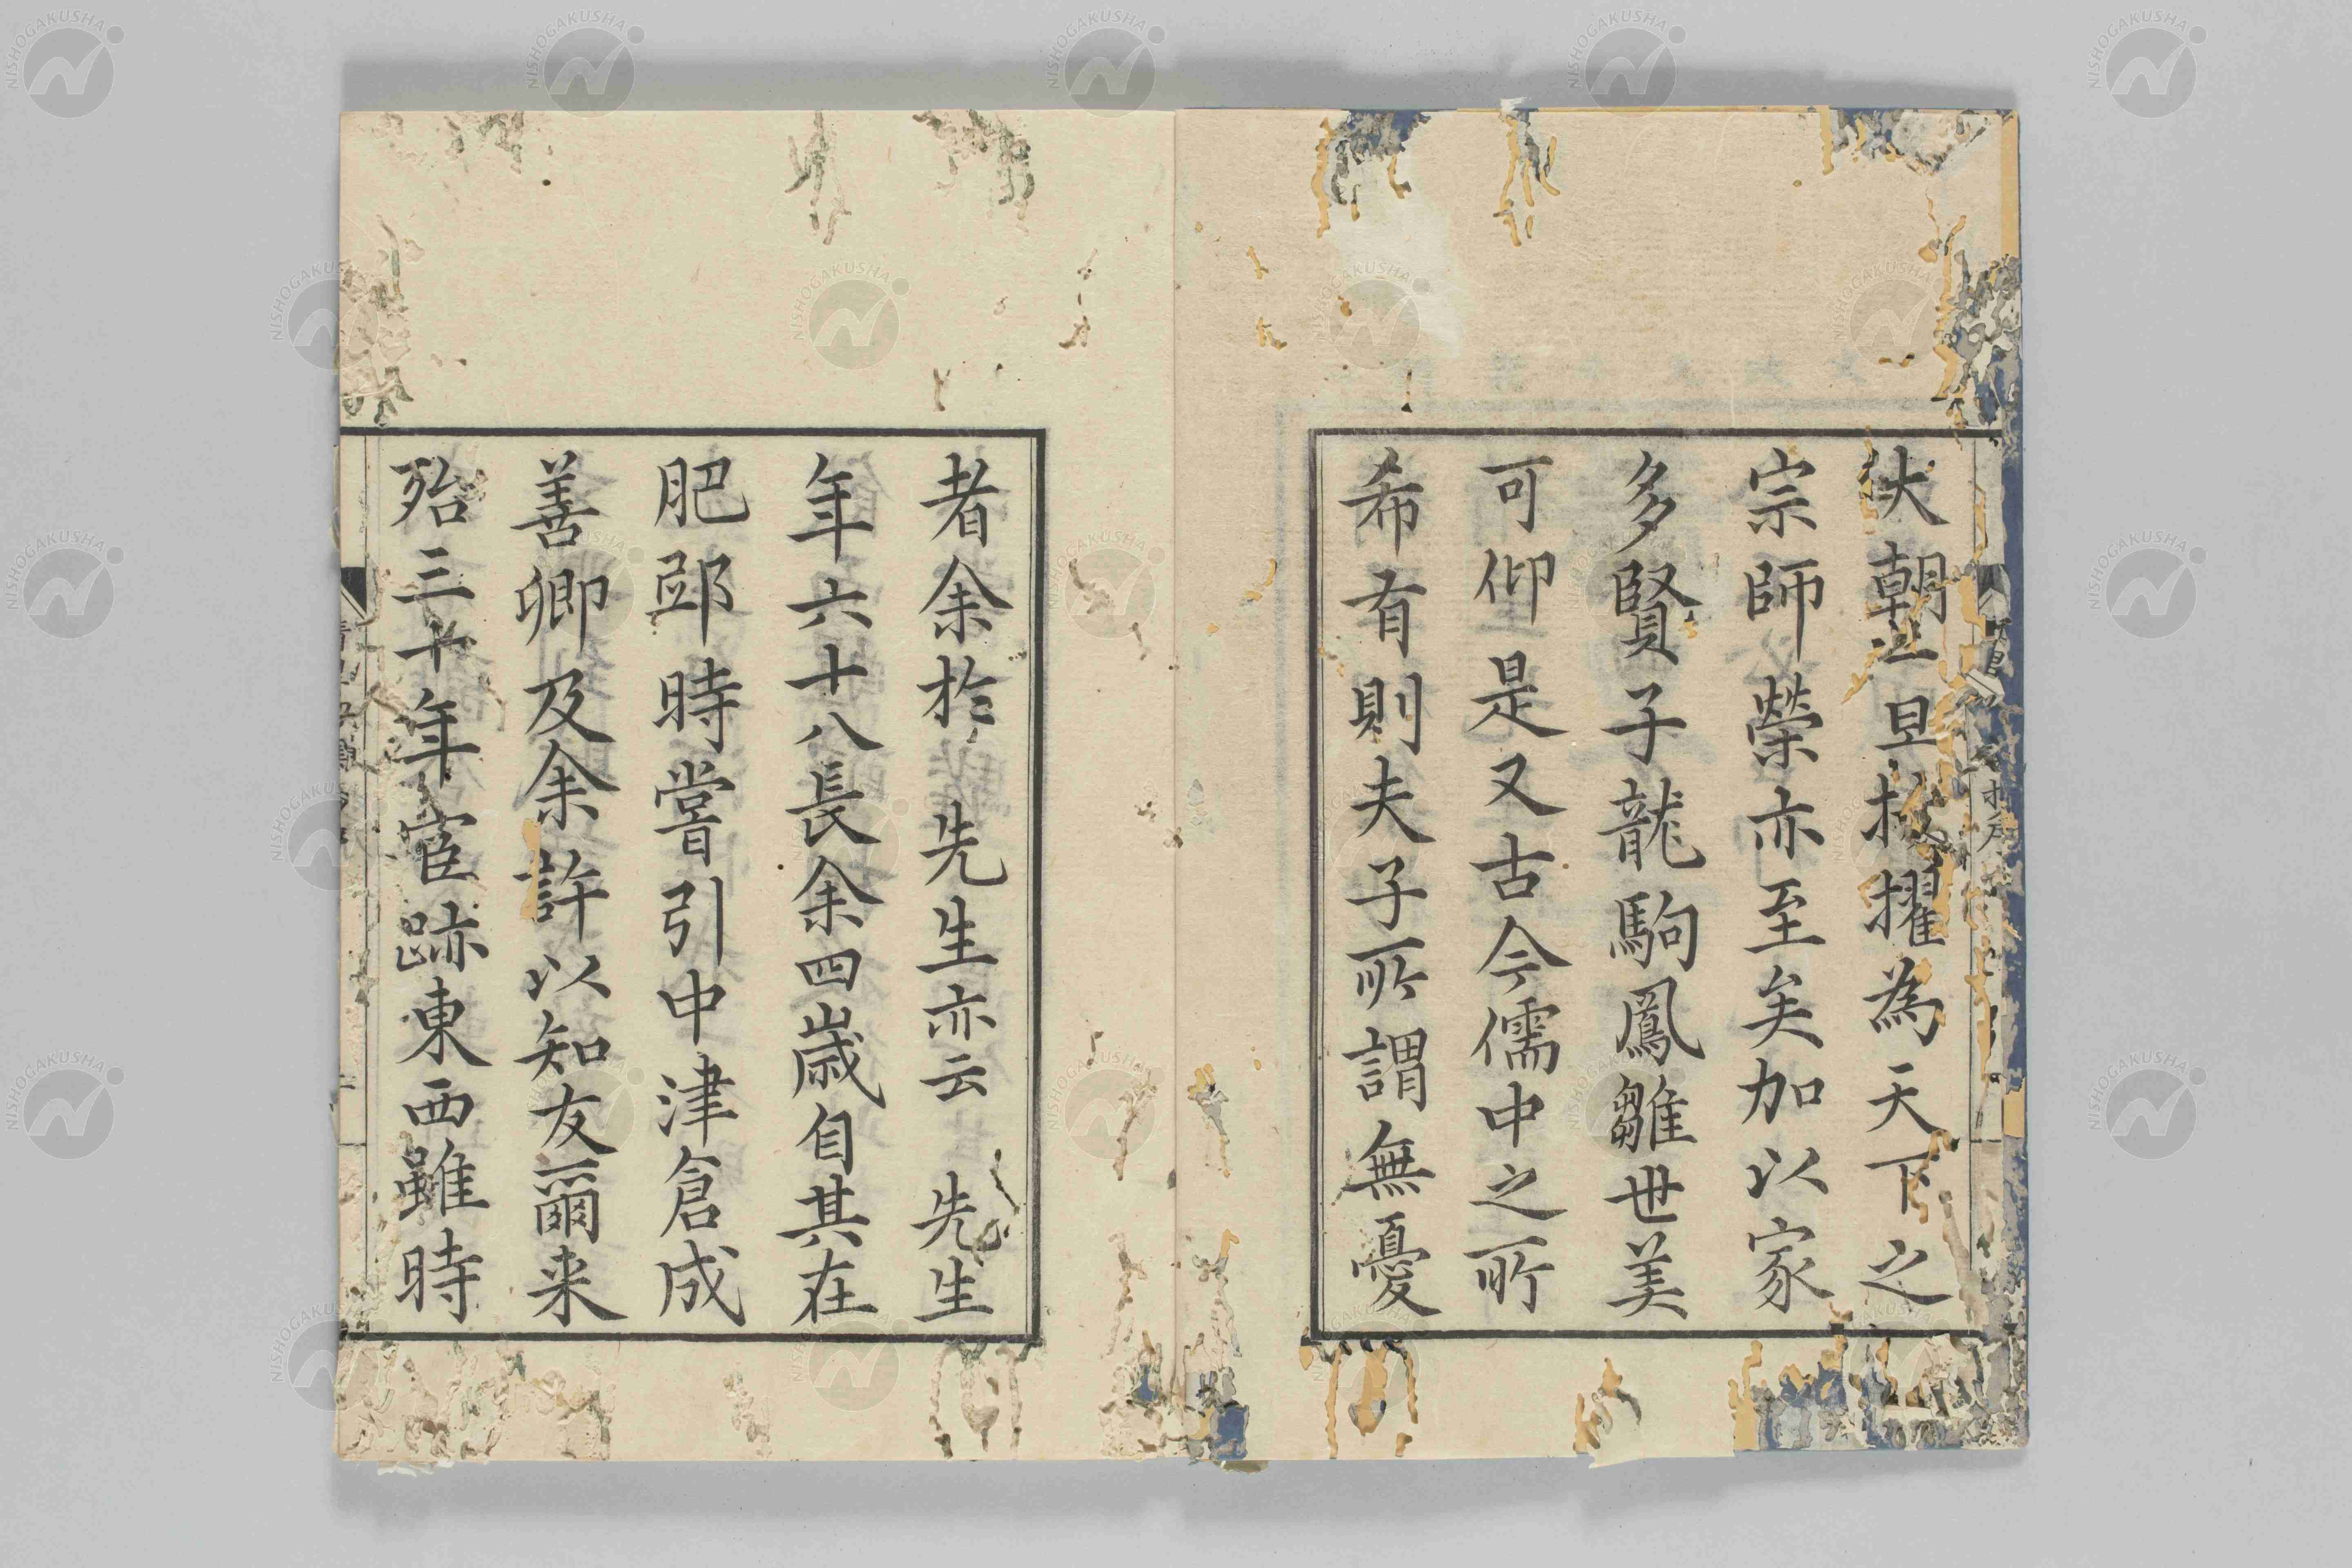 大朝一旦拔擢為天下之
宗師榮亦至矣加以家
多賢子龍駒鳳雛世美
可仰是又古今儒中之所
希有則夫子所謂無憂
者余於 先生亦云 先生
年六十八長余四歳自其在
肥邸時嘗引中津倉成
善卿及余許以知友爾来
殆三十年宦跡東西雖時
NISHOGAKUSHA